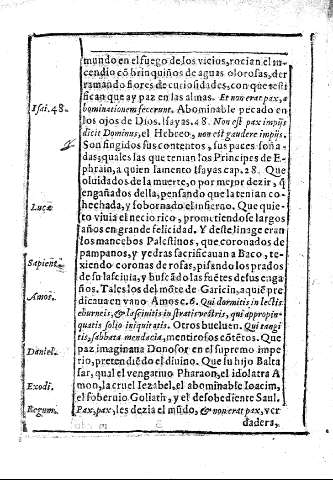 mundo en el fuego de los vicios, rocian el in-
cendio cõ brinquiños de aguas olorosas, der
ramando flores de curiosidades, con que testi
fican que ay paz en las almas. Et non erat pax, a
bominationem fecerunt. Abominable pecado en
Isai. 48.
los ojos de Dios. Isayas. 48. Non est pax impijs
dicit Dominus, el Hebreo, non est gaudere impijs.
Son fingidos sus contentos, sus paces soña-
das; quales las que tenian los Principes de E-
phrain, a quien lamento Isayas cap. 28. Que
oluidados de la muerte, o por mejor dezir, q̃
engañados della, pensando que la tenian co-
hechada, y sobornado el infierno. Que quie-
Lucæ
to viuia el necio rico, prometiendose largos
años en grande felicidad. Y deste linage eran
los mancebos Palestinos, que coronados de
pampanos, y yedras sacrificauan a Baco, te-
xiendo coronas de rosas, pisando los prados
Sapient.
de su lasciuia, y buscãdo las fuẽtes de sus enga
ños. Tales los del mõte de Garicin, a quiẽ pre
Amos.
dicaua en vano Amos c. 6. Qui dormitis in lectis
eburneis, & lasciuitis in stratis vestris, qui appropin-
quatis solio iniquitatis. Otros bueluen. Qui tangi
tis, sabbata mendacia, mentirosos cõtẽtos. Que
Daniel.
paz imaginaua Donosor en el supremo impe
rio, pretendiẽdo el diuino. Que su hijo Balta
sar, qual el vengatiuo Pharaon, el idolatra A
Exodi.
mon, la cruel Iezabel, el abominable Ioacim,
el soberuio Goliath, y el desobediente Saul.
Regum.
Pax, pax, les dezia el mũdo, & non erat pax, ver
dadera,